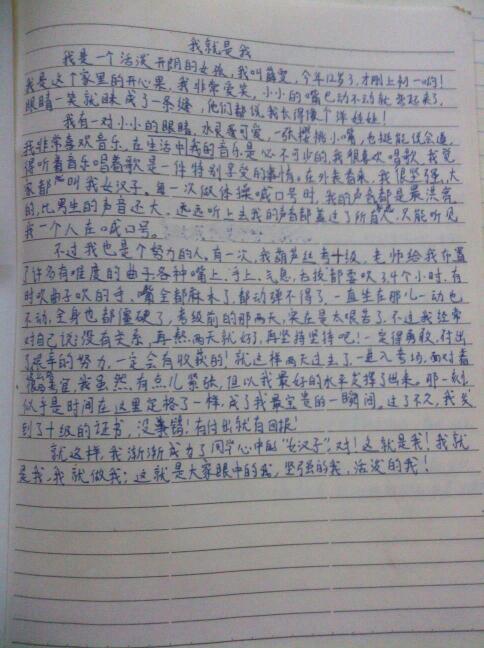 我就是我
我是一个活泼开朗的女孩,我叫薛雯,今年12岁了,才刚上初一哟!
我是这个家里的开心果,我非常爱笑,小小的嘴巴动不动就
眼睛一笑就眯成了一条缝,他们都说我长得像个洋娃娃!
我有一对小小的眼睛,水灵可爱,一张樱桃小嘴,也挺能说会道,
我非常喜欢音乐,在生活中我的音乐是必不可少的,我很喜欢唱歌,我觉
得听着音乐唱着歌是一件特别享受的事情。在外表看来,我很坚强,大
家都叫我女汉子。每一次做体操喊口号时,我的声音都是最洪亮
的,比男生的声音还大。远远听上去我的声音都盖过了所有人,只能听见
我一个人在喊口号。
不过我也是个努力的人,有一次,我葫芦丝考十级,老师给我布置
了许多有难度的曲子各种嘴上,手上,气息,舌技都要吹3,4个小时,有
时吹曲子吹的手,嘴全都麻木了,都动弹不得了,一直坐在那儿一动也
不动,全身也都僵硬了,考级前的那两天,实在是太艰苦了,不过我经常
对自己说:没有关系,再熬两天就好了,再坚持坚持吧!一定得勇敢,付出
了艰辛的努力,一定会有收获的!就这样两天过去了,一进入考场,面对着
考官,我虽然有点儿紧张,但以我最好的水平发挥了出来。那一刻,
似乎是时间在这里定格了一样,成了我最宝贵的一瞬间。过了不久,我收
到了十级的证书,没错!有付出就有回报!
就这样,我渐渐成为了同学心中的“女汉子”,对!这就是我!我就
是我,我就做我;这就是大家眼中的我,坚强的我,活泼的我!